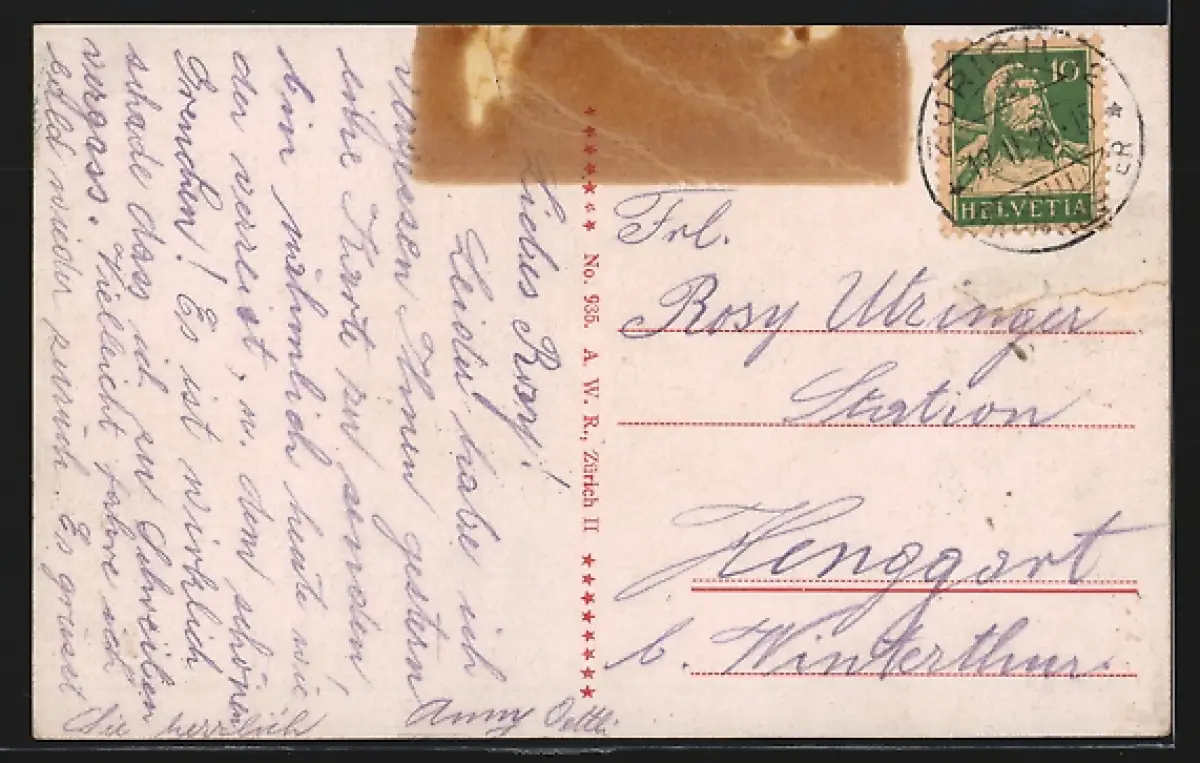 Liebes Rosy!
Leider habe ich
vergessen Ihnen gestern
eine Karte zu senden,
bin nähmlich heute wie
der verreist, n. dem schönen
Grenchen! Es ist wirklich
schade dass ich zu schreiben
vergass. Vielleicht fahre ich
bald wieder zurück. Es grüsst
Sie herzlich
Anny Oettli
No. 935. A. W. R., Zürich II
Frl.
Rosy Utzinger
Station
Henggart
b. Winterthur.
10
HELVETIA